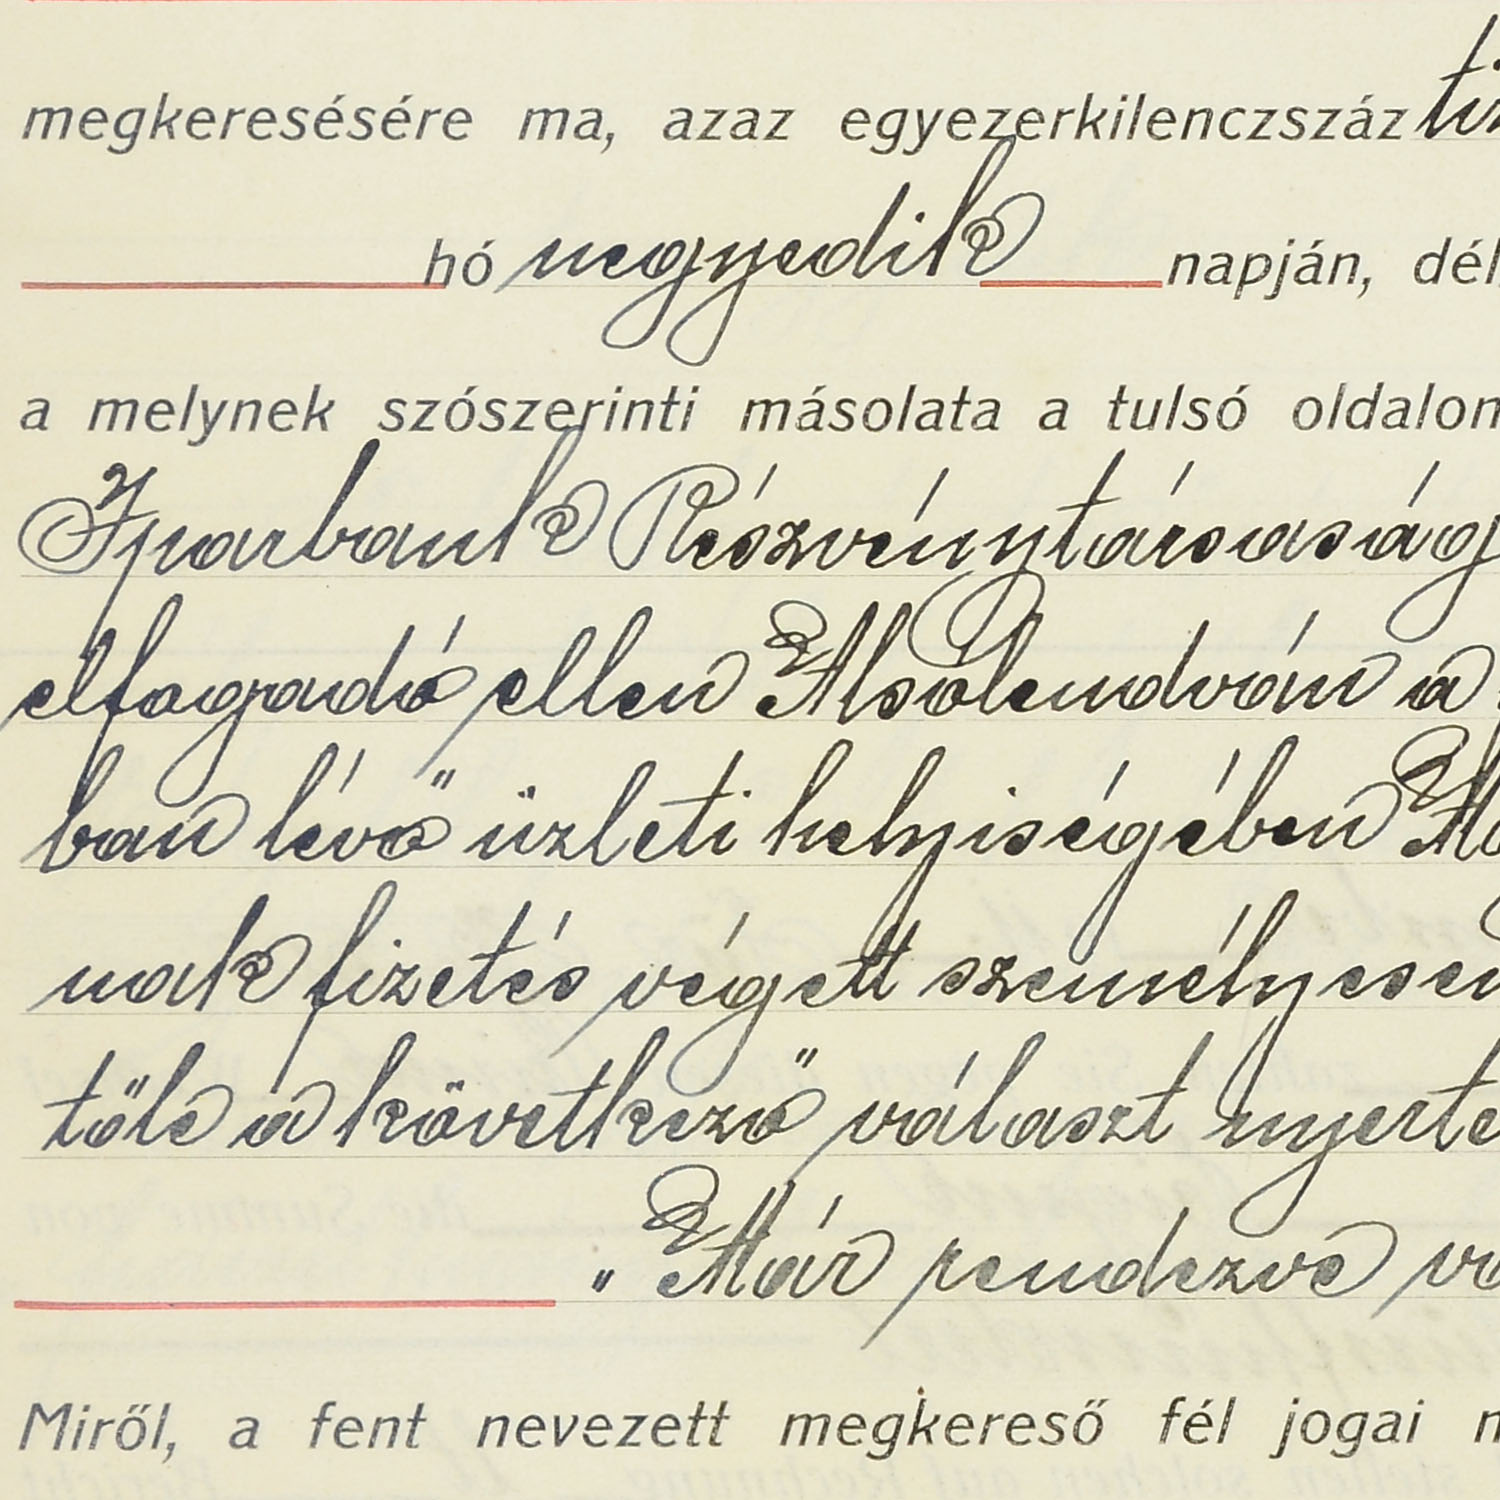 megkeresésére ma, azaz egyezerkilenczszáz
hó negyedik napján, dél
a melynek szószerinti másolata a tulsó oldalon
Iparbank Részvénytársaság
elfogadó ellen Alsólendván a
ban lévő üzleti helyiségében
nak fizetés végett személyesen
tőle a következő választ nyerte
„Már rendezve
Miről, a fent nevezett megkereső fél jogai